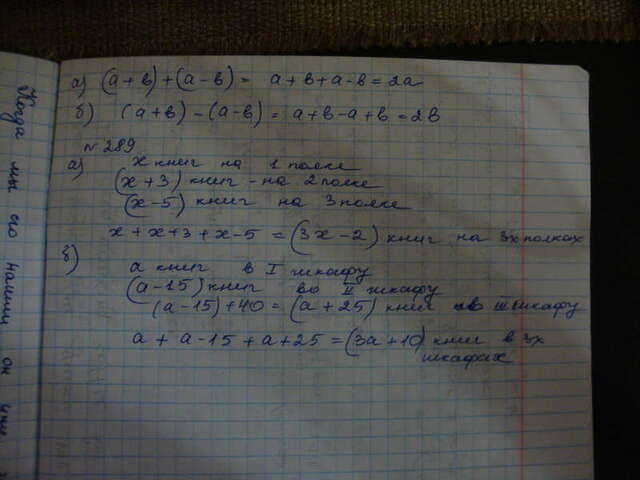 а) (а + в) + (а - в) = а + в + а - в = 2а
б) (а + в) - (а - в) = а + в - а + в = 2в
№ 289
а) х книг на 1 полке
(х + 3) книг - на 2 полке
(х - 5) книг на 3 полке
х + х + 3 + х - 5 = (3х - 2) книг на 3х полках
б) а книг в I шкафу
(а - 15) книг во II шкафу
(а - 15) + 40 = (а + 25) книг в III шкафу
а + а - 15 + а + 25 = (3а + 10) книг в 3х
шкафах
Когда мы его нашли он уже